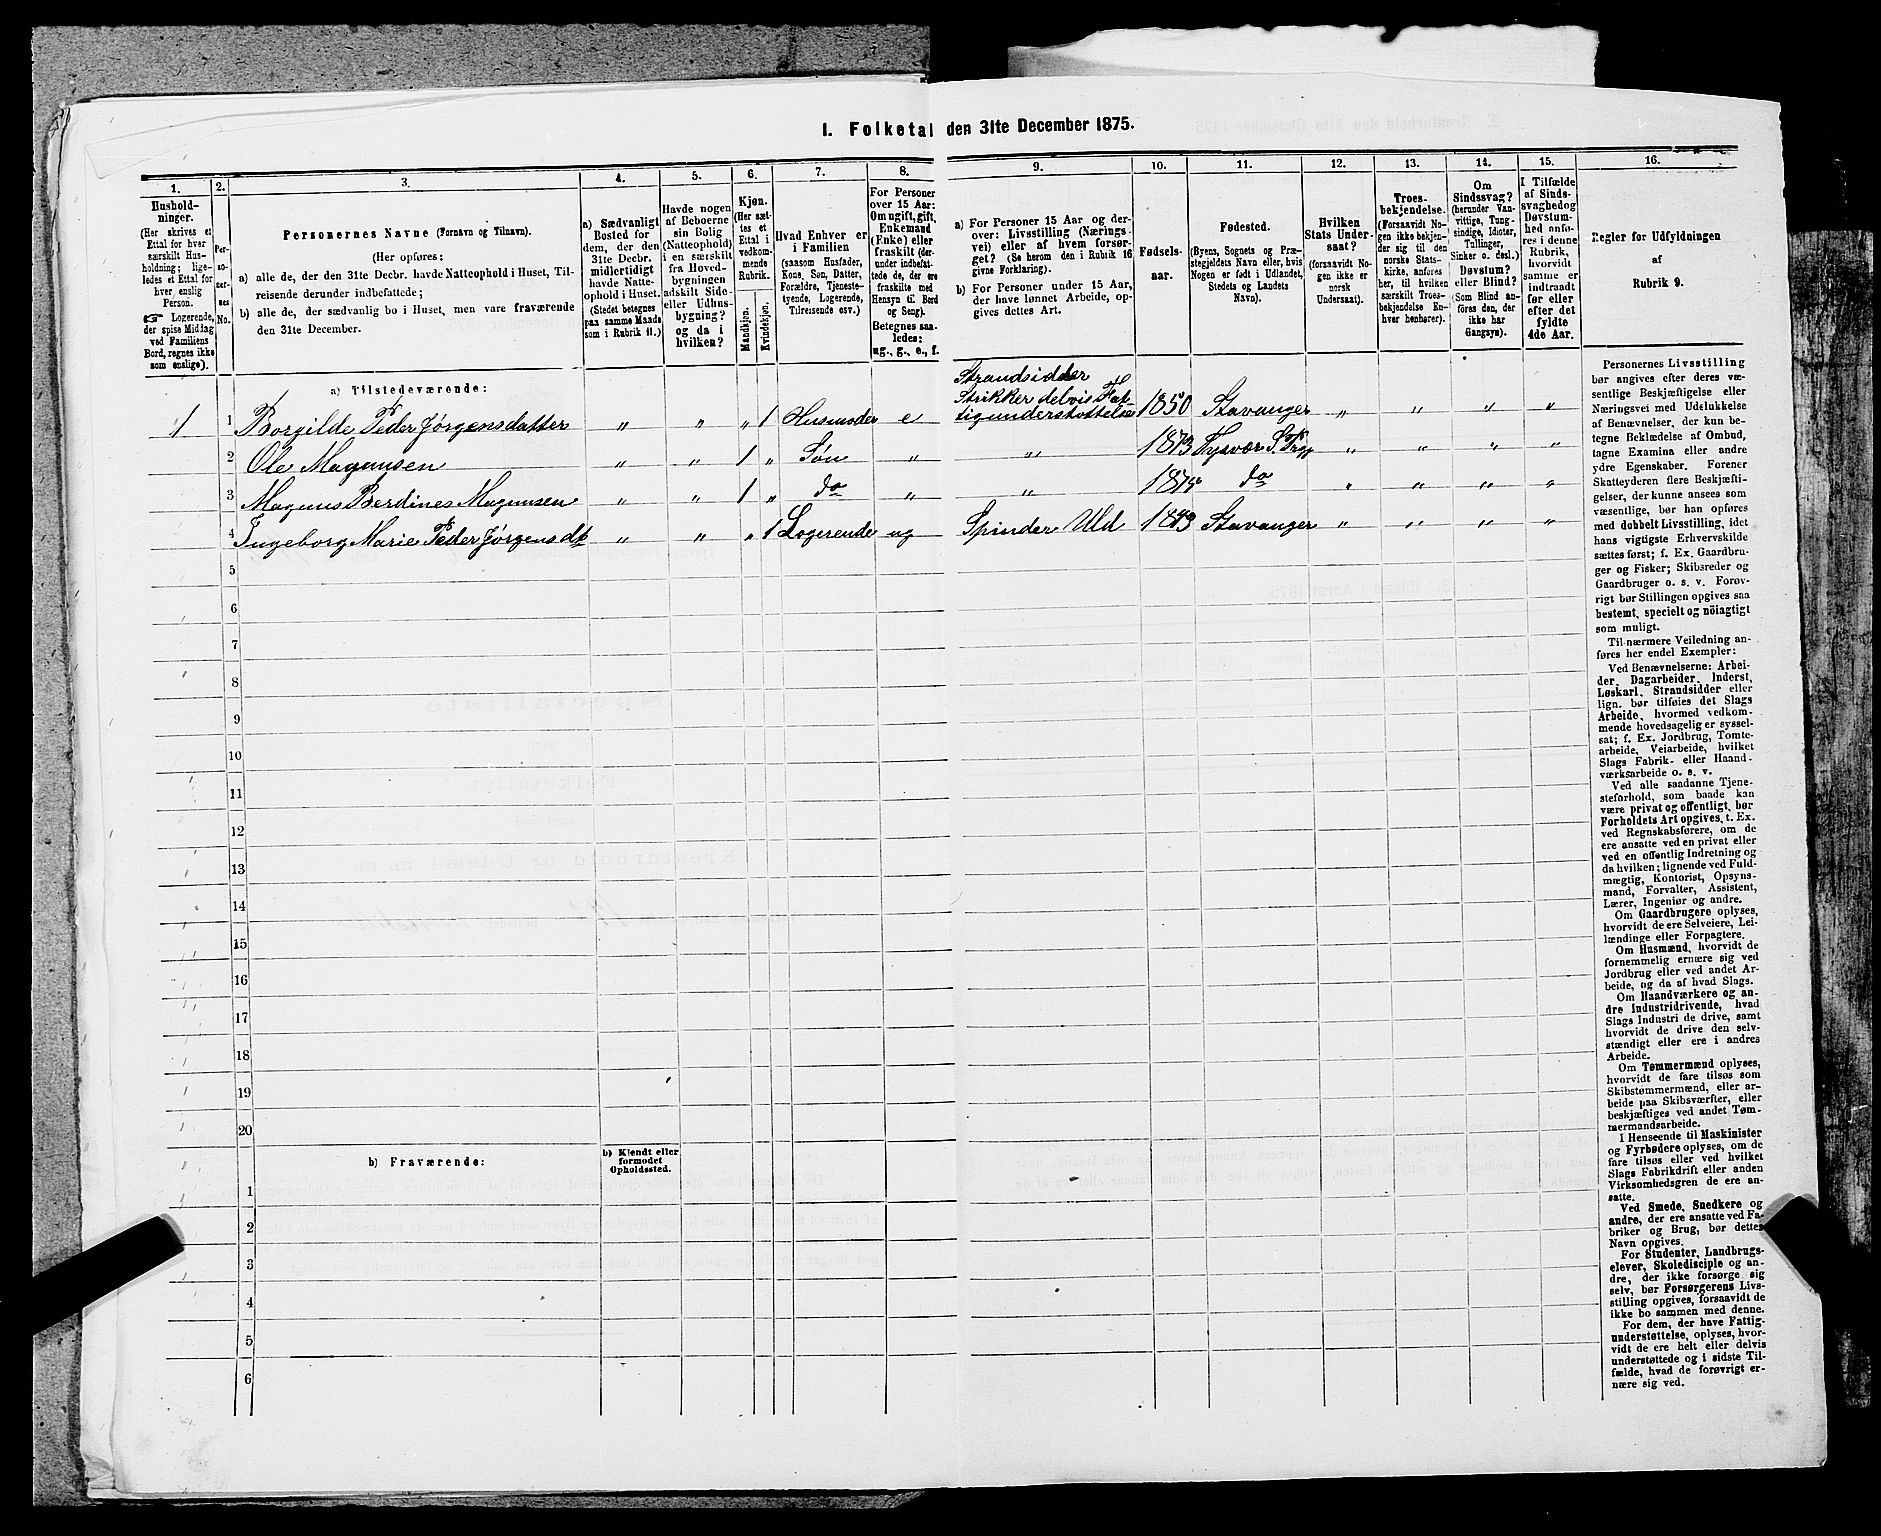 I. Folketal den 31te December 1875.
1. 2. 3. 4. 5. 6. 7. 8. 9. 10. 11. 12. 13. 14. 15. 16.
Hushold-
ninger.
(Her skrives et
Ettal for hver
særskilt Hus-
holdning; lige-
ledes et Ettal for
hver enslig
Person.
☞ Logerende,
der spise Middag
ved Familiens
Bord, regnes ikke
som enslige).
Per-
so-
ner-
nes
No.
Personernes Navne (Fornavn og Tilnavn).
(Her opføres:
a) alle de, der den 31te Decbr. havde Natteophold i Huset, Til-
reisende derunder indbefattede;
b) alle de, der sædvanlig bo i Huset, men vare fraværende
den 31te December.
a) Sædvanligt
Bosted for
dem, der den
31te Decbr.
midlertidigt
havde Natte-
ophold i Huset.
(Stedet betegnes
paa samme Maade
som i Rubrik 11.)
Havde nogen
af Beboerne
sin Bolig
(Natteophold)
i en særskilt
fra Hoved-
bygningen
adskilt Side-
eller Udhus-
bygning?
og da i
hvilken?
Kjøn.
(Her sæt-
tes et
Ettal i
vedkom-
mende
Rubrik.
Mandkjøn.
Kvindekjøn.
Hvad Enhver er
i Familien
(saasom Husfader,
Kone, Søn, Datter,
Forældre, Tjeneste-
tyende, Logerende,
Tilreisende osv.)
For Personer
over 15 Aar:
Om ugift, gift,
Enkemand
(Enke) eller
fraskilt (der-
under indbefat-
tede de, der ere
fraskilte med
Hensyn til Bord
og Seng).
Betegnes saa-
ledes:
ug., g., e., f.
a) For Personer 15 Aar og der-
over: Livsstilling (Nærings-
vei) eller af hvem forsør-
get? (Se herom den i Rubrik 16
givne Forklaring).
b) For Personer under 15 Aar,
der have lønnet Arbeide, op-
gives dettes Art.
Fødsels-
aar.
Fødested.
(Byens, Sognets og Præ-
stegjeldets Navn eller, hvis
Nogen er født i Udlandet,
Stedets og Landets
Navn).
Hvilken
Stats Under-
saat?
(forsaavidt No-
gen ikke er
norsk
Undersaat).
Troes-
bekjendelse.
(Forsaavidt No-
gen ikke bekjen-
der sig til den
norske Stats-
kirke, anføres
her, til hvilken
særskilt Troes-
bekjendelse En-
hver henhører).
Om
Sindssvag?
(herunder Van-
vittige, Tung-
sindige, Idioter,
Tullinger,
Sinker o. desl.)
Døvstum?
eller Blind?
(Som Blind an-
føres den, der
ikke har
Gangsyn).
I Tilfælde
af Sinds-
svaghed og
Døvstum-
hed anfø-
res i denne
Rubrik,
hvorvidt
samme er
indtraadt
før eller
efter det
fyldte
4de Aar.
Regler for Udfyldningen
af
Rubrik 9.
a) Tilstedeværende:
Strandsidder
Strikker delvis Fat-
1 1 Borgilde Peder Jörgensdatter „ „ „ 1 Husmoder e tigunderstøttelse 1850 Stavanger „ „ „ „
2 Ole Magnusen „ „ 1 „ Søn „ „ 1873 Tysvær S. Prgj „ „ „ „
3 Magnus Berdines Magnusen „ „ 1 „ do „ „ 1875 do „ „ „ „
4 Ingeborg Marie Peder Jørgensdt „ „ „ 1 Logerende ug Spinder Uld 1843 Stavanger „ „ „ „
5
6
7
8
9
10
11
12
13
14
15
16
17
18
19
20
b) Fraværende:
b) Kjendt eller
formodet
Opholdssted.
1
2
3
4
5
6
Personernes Livsstilling
bør angives efter deres væ-
sentlige Beskjæftigelse eller
Næringsvei med Udelukkelse
af Benævnelser, der kun be-
tegne Beklædelse af Ombud,
tagne Examina eller andre
ydre Egenskaber. Forener
Skatteyderen flere Beskjæfti-
gelser, der kunne ansees som
væsentlige, bør han opføres
med dobbelt Livsstilling, idet
hans vigtigste Erhvervskilde
sættes først; f. Ex. Gaardbru-
ger og Fisker; Skibsreder og
Gaardbruger o. s. v. Forøv-
rigt bør Stillingen opgives saa
bestemt, specielt og nöiagtigt
som muligt.
Til nærmere Veiledning an-
føres her endel Exempler:
Ved Benævnelserne: Arbei-
der, Dagarbeider, Inderst,
Løskarl, Strandsidder eller
lign. bør tilføies det Slags
Arbeide, hvormed vedkom-
mende hovedsagelig er syssel-
sat; f. Ex. Jordbrug, Tomte-
arbeide, Veiarbeide, hvilket
Slags Fabrik- eller Haand-
værksarbeide o. s. v.
Ved alle saadanne Tjene-
steforhold, som baade kan
være privat og offentligt, bør
Forholdets Art opgives, t. Ex.
ved Regnskabsførere, om de
ere ansatte ved en privat eller
ved en offentlig Indretning og
da hvilken; lignende ved Fuld-
mægtig, Kontorist, Opsyns-
mand, Forvalter, Assistent,
Lærer, Ingeniør og andre.
Om Gaardbrugere oplyses,
hvorvidt de ere Selveiere, Lei-
lændinge eller Forpagtere.
Om Husmænd, hvorvidt de
fornemmelig ernære sig ved
Jordbrug eller ved andet Ar-
beide, og da af hvad Slags.
Om Haandværkere og an-
dre Industridrivende, hvad
Slags Industri de drive, samt
hvorvidt de drive den selv-
stændigt eller ere i andres
Arbeide.
Om Tømmermænd oplyses,
hvorvidt de fare tilsøs som
Skibstømmermænd, eller ar-
beide paa Skibsværfter, eller
beskjæftiges ved andet Tøm-
mermandsarbeide.
I Henseende til Maskinister
og Fyrbødere oplyses, om de
fare tilsøs eller ved hvilket
Slags Fabrikdrift eller anden
Virksomhedsgren de ere an-
satte.
Ved Smede, Snedkere og
andre, der ere ansatte ved Fa-
briker og Brug, bør dettes
Navn opgives.
For Studenter, Landbrugs-
elever, Skoledisciple og an-
dre, der ikke forsørge sig
selv, bør Forsørgerens Livs-
stilling opgives, forsaavidt de
ikke bo sammen med denne.
For dem, der have Fattig-
understøttelse, oplyses, hvor-
vidt de ere helt eller delvis
understøttede og i sidste Til-
fælde, hvad de forøvrigt er-
nære sig ved.